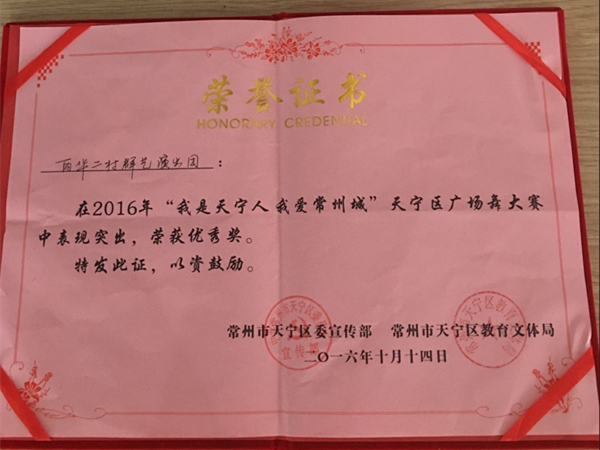 荣誉证书
HONORARY CREDENTIAL
百华二村群艺演出团：
在2016年“我是天宁人 我爱常州城”天宁区广场舞大赛
中表现突出，荣获优秀奖。
特发此证，以资鼓励。
常州市天宁区委宣传部 常州市天宁区教育文体局
二〇一六年十月十四日
宣传部